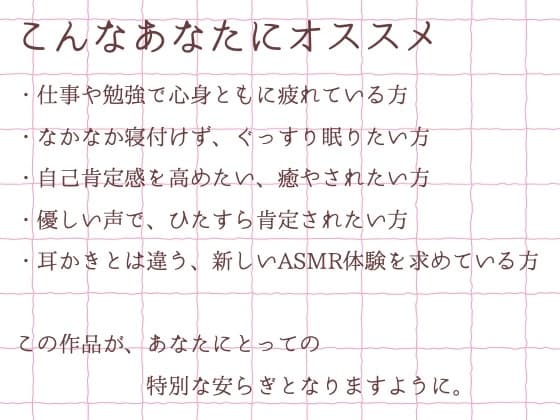 こんなあなたにオススメ
・仕事や勉強で心身ともに疲れている方
・なかなか寝付けず、ぐっすり眠りたい方
・自己肯定感を高めたい、癒やされたい方
・優しい声で、ひたすら肯定されたい方
・耳かきとは違う、新しいASMR体験を求めている方
この作品が、あなたにとっての
特別な安らぎとなりますように。